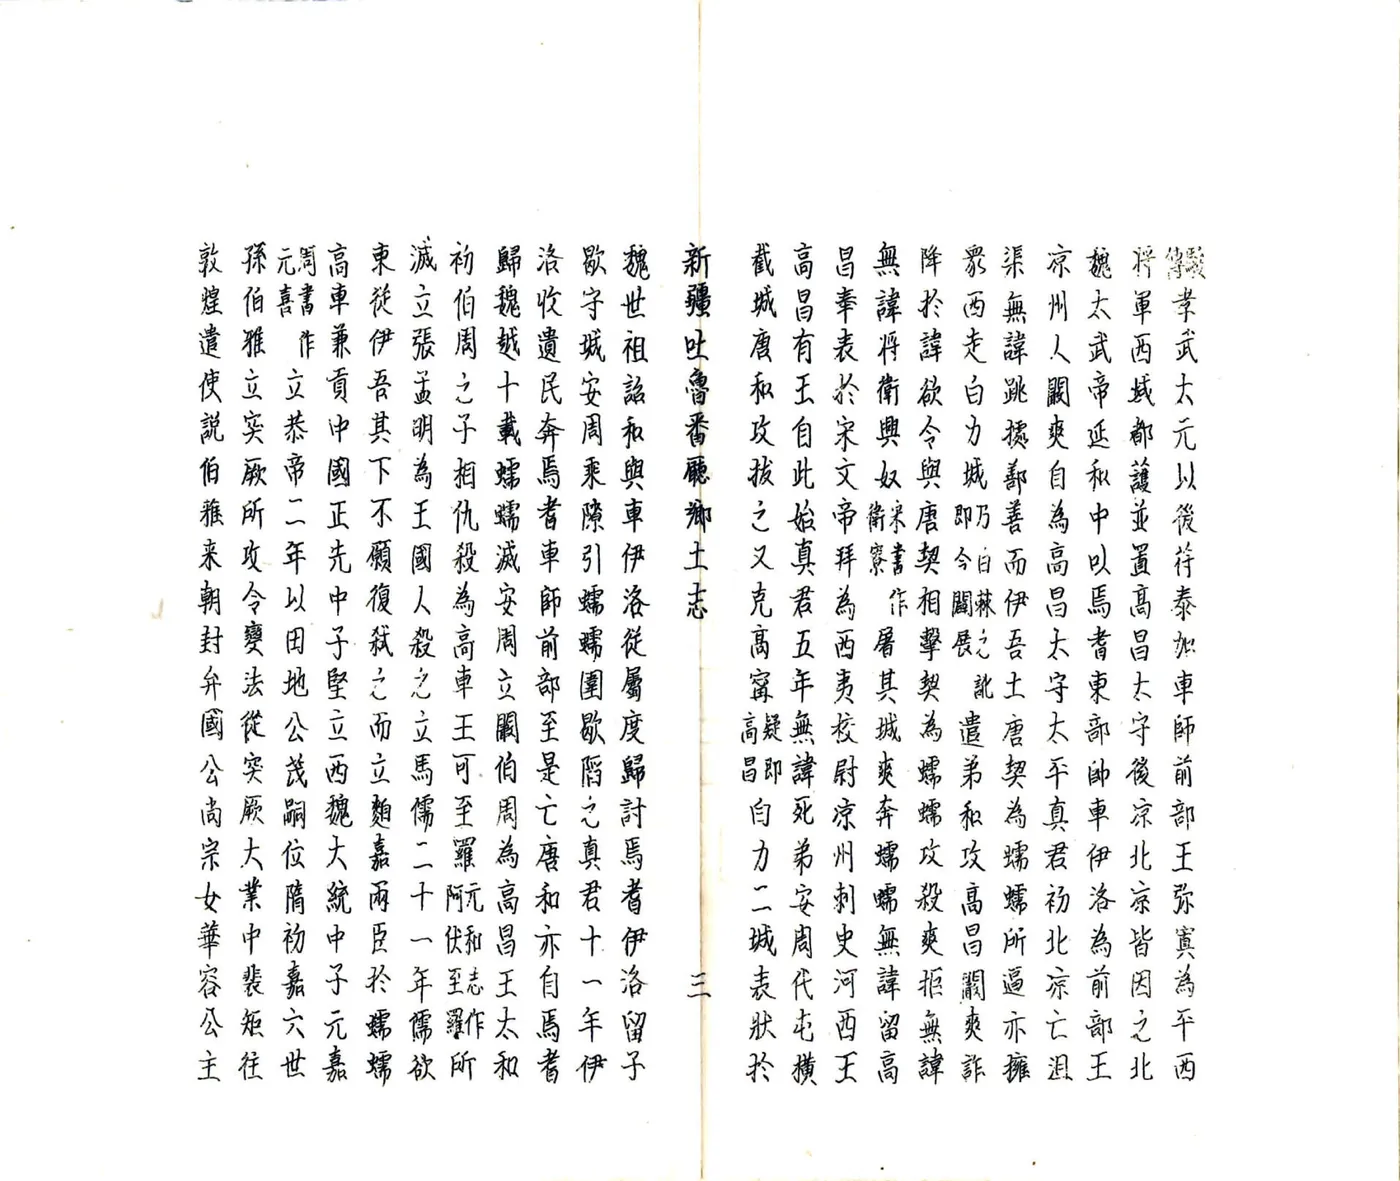 傳孝武太元以後苻泰加車師前部王弥寘為平西
将軍西域都護並置高昌太守後凉北凉皆因之北
魏太武帝延和中以焉耆東部帥車伊洛為前部王
凉州人闞爽自為高昌太守太平真君初北凉亡沮
渠無諱跳據鄯善而伊吾土唐契為蠕蠕所逼亦擁
衆西走白力城乃白棘之訛即今闢展遣弟和攻高昌闞爽詐
降於諱欲令與唐契相擊契為蠕蠕攻殺爽拒無諱
無諱将衛興奴宋書作衛寮屠其城爽奔蠕蠕無諱留高
昌奉表於宋文帝拜為西夷校尉凉州刺史河西王
高昌有王自此始真君五年無諱死弟安周代屯橫
截城唐和攻拔之又克高甯疑即高昌白力二城表狀於
新疆吐魯番廳鄉土志 三
魏世祖詔和與車伊洛從屬度歸討焉耆伊洛留子
歇守城安周乘隙引蠕蠕圍歇陷之真君十一年伊
洛收遺民奔焉耆車師前部至是亡唐和亦自焉耆
歸魏越十載蠕蠕滅安周立闞伯周為高昌王太和
初伯周之子相仇殺為高車王可至羅元和志作阿伏至羅所
滅立張孟明為王國人殺之立馬儒二十一年儒欲
東徙伊吾其下不願復弒之而立麴嘉兩臣於蠕蠕
高車兼貢中國正先中子堅立西魏大統中子元嘉
周書作元喜立恭帝二年以田地公茂嗣位隋初嘉六世
孫伯雅立突厥所攻令變法從突厥大業中裴矩往
敦煌遣使説伯雅来朝封弁國公尚宗女華容公主